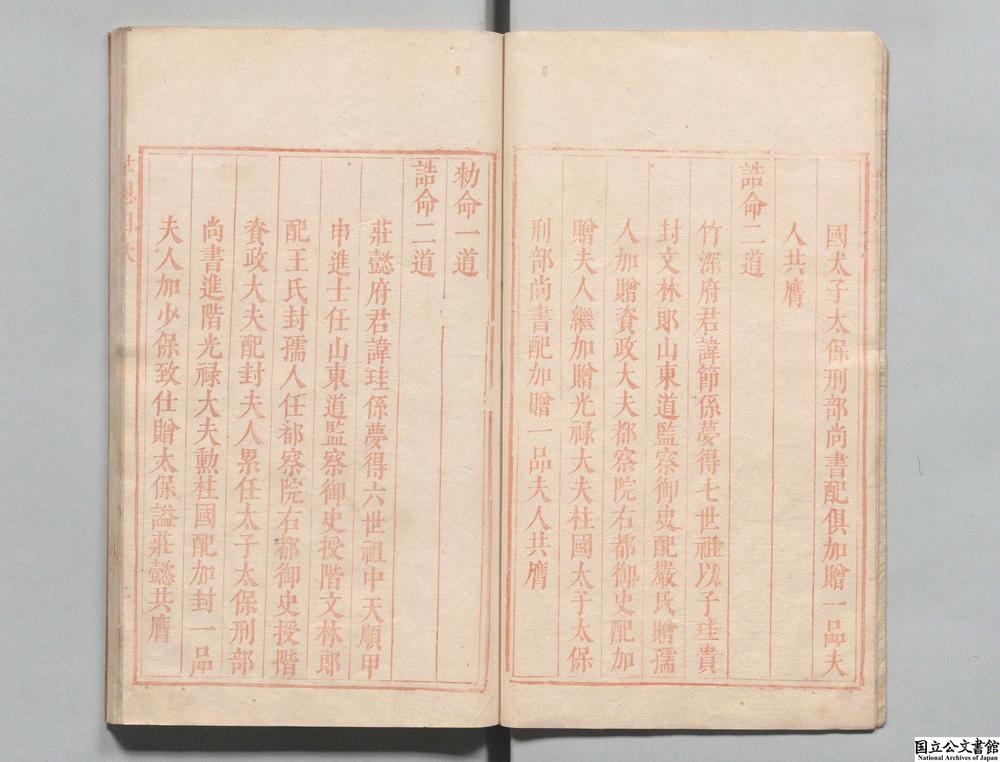 國太子太保刑部尚書配俱加贈一品夫
人共膺
誥命二道
竹深府君諱節係夢得七世祖以子珪貴
封文林郎山東道監察御史配嚴氏贈孺
人加贈資政大夫都察院右都御史配加
贈夫人繼加贈光祿大夫柱國太子太保
刑部尚書配加贈一品夫人共膺
勑命一道
誥命二道
莊懿府君諱珪係夢得六世祖中天順甲
申進士任山東道監察御史授階文林郎
配王氏封孺人任都察院右都御史授階
資政大夫配封夫人累任太子太保刑部
尚書進階光祿大夫勳柱國配加封一品
夫人加少保致仕贈太保諡莊懿共膺
国立公文書館
National Archives of Japan